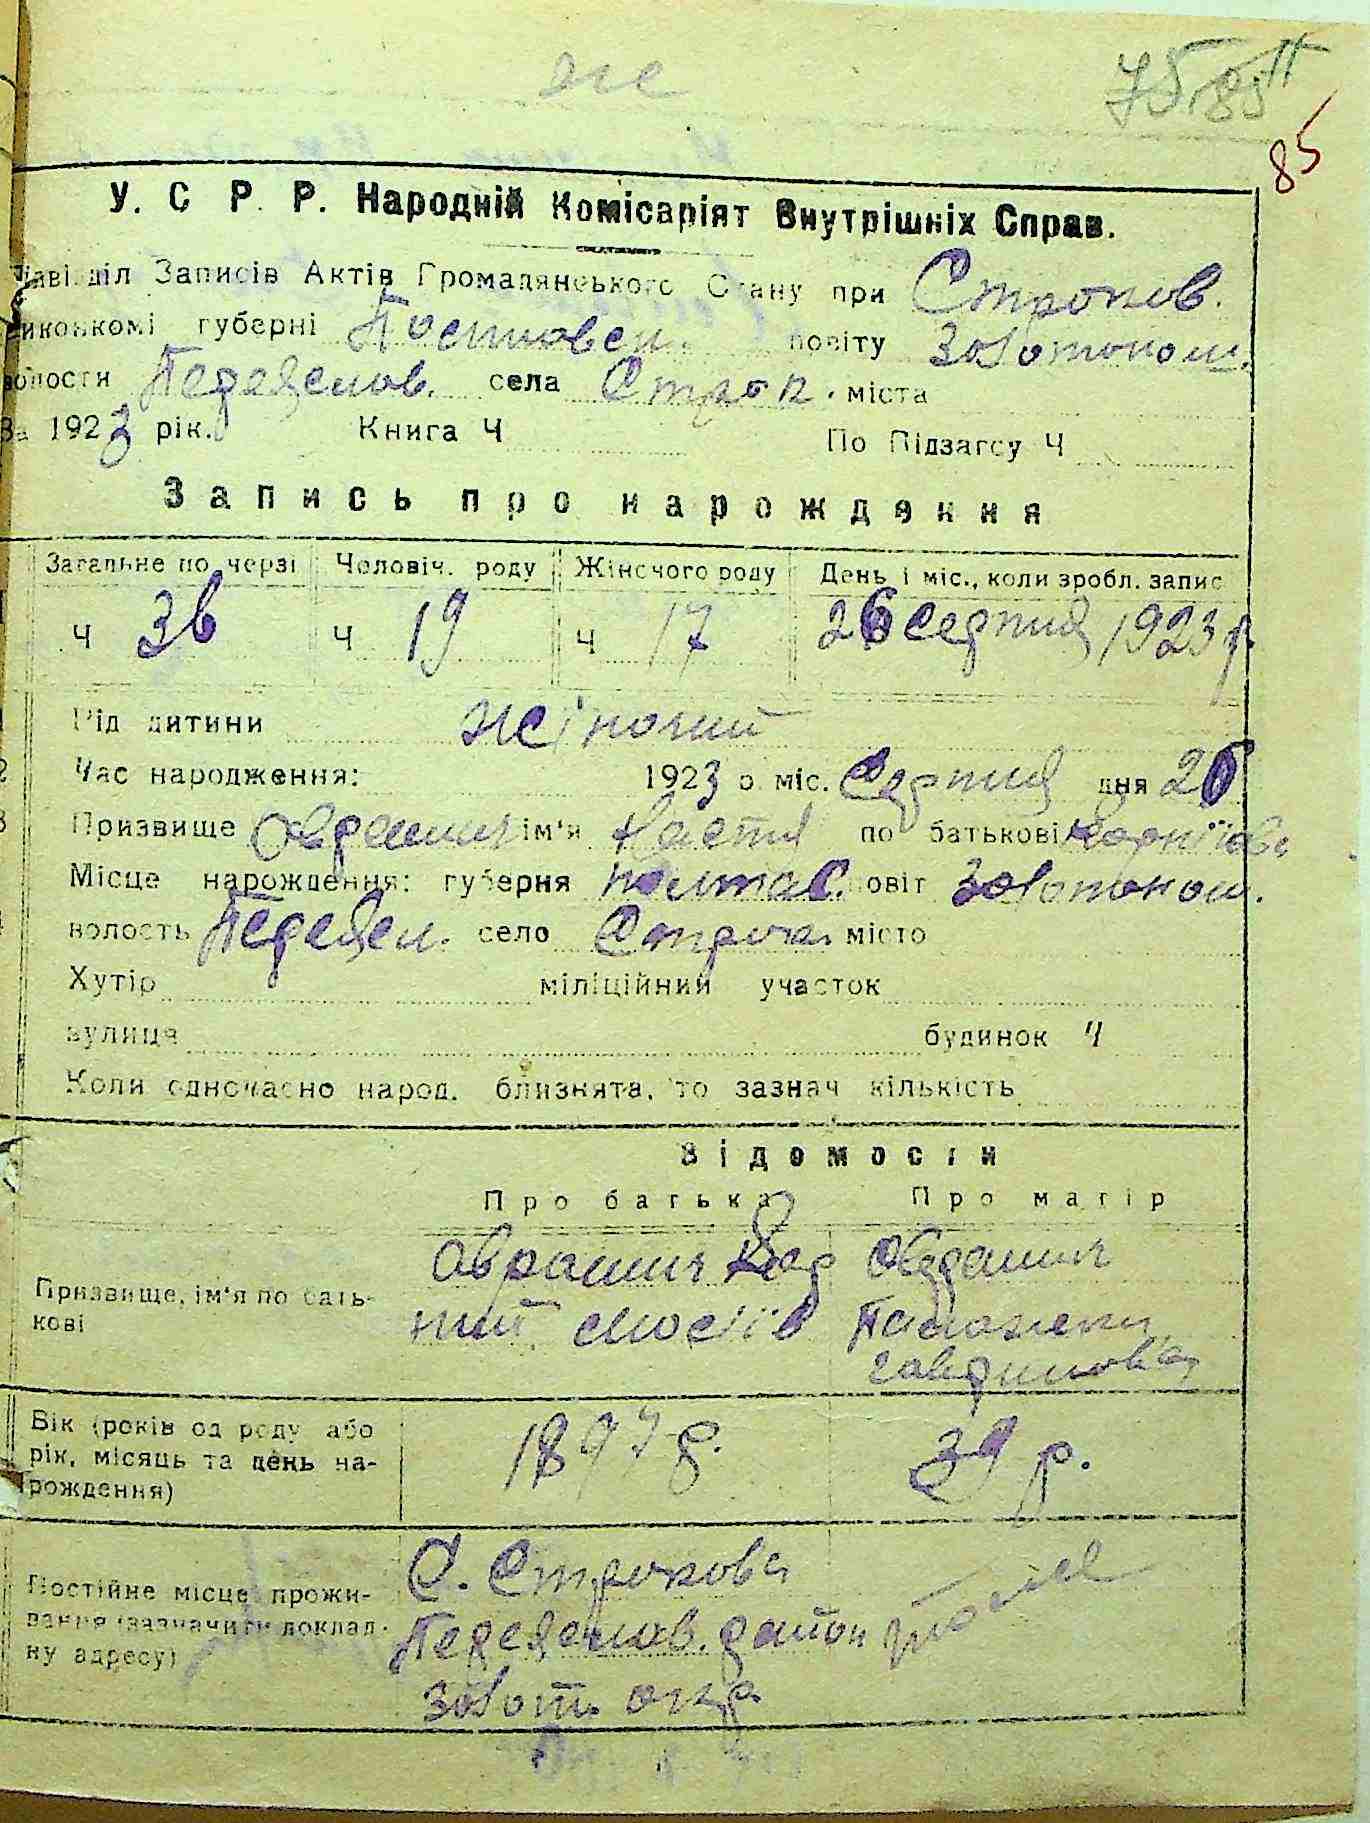 же
75 85
85
У. С Р. Р. Народній Комісаріят Внутрішніх Справ.
Підвідділ Записів Актів Громадянського Стану при Строков.
виконкомі губерні повіту Золотонош.
волости села Строк. міста
За 1923 рік. Книга Ч По Підзагсу Ч
Запись про нарождення
Загальне по черзі Человіч. роду Жіночого роду День і міс., коли зробл. запис
Ч 36 Ч 19 Ч 17 26 серпня 1923 р.
Рід дитини жіночий
Час народження: 1923 р. міс. Серпня дня 26
Призвище ім'я Настя по батькові Корніївна
Місце нарождення: губерня Полтав. повіт Золотонош.
волость Переясл. село Строкова місто
Хутір міліційний участок
вулиця будинок Ч
Коли одночасно народ. близнята, то зазнач кількість
Відомости
Про батька Про матір
Призвище, ім'я по бать-
кові
Овра­мич Кор
ній Мосіїв
Вік (років од роду або
рік, місяць та день на-
рождення)
1897 р. 39 р.
Постійне місце прожи-
вання (зазначити доклад-
ну адресу)
С. Строкова
Переяслав. район
Золот. окр.